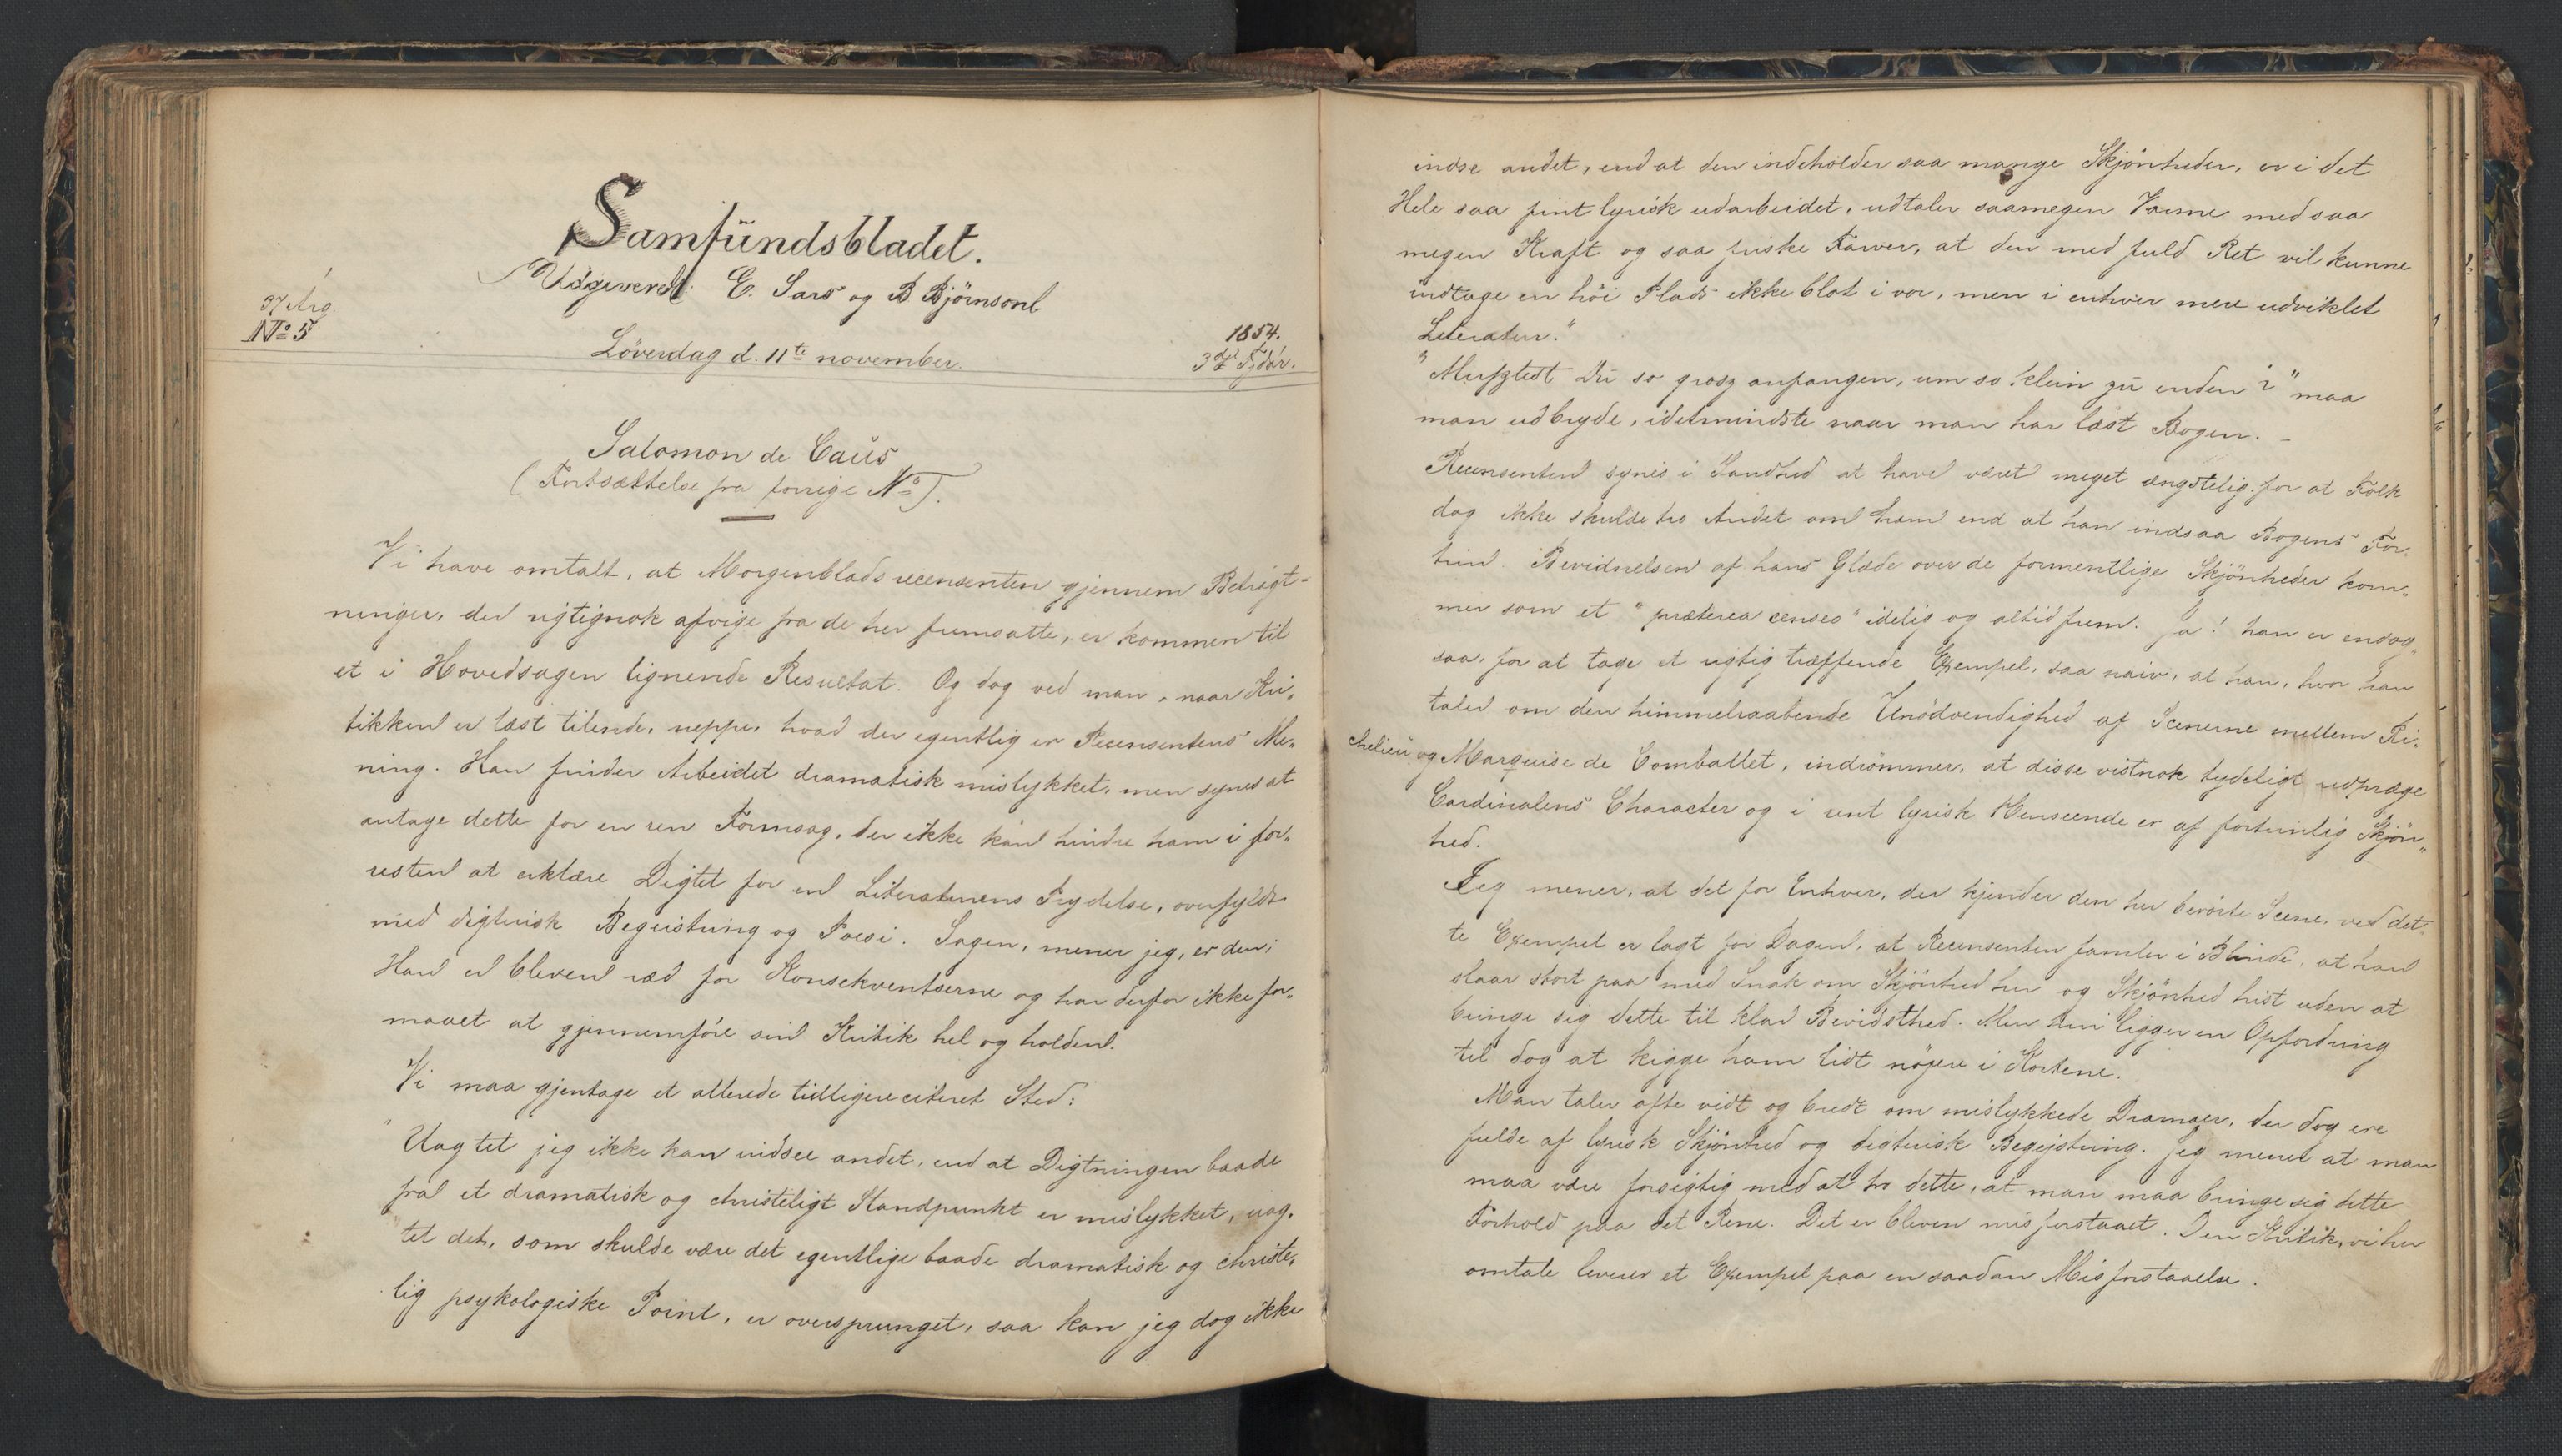 Samfundsbladet.
Udgivere: E. Sars og B Bjørnson
37 Årg.
No 5
Löverdag d. 11te november.
1854.
3die Fjdår.
Salomon de Caüs
(Fortsættelse fra forrige No).
Vi have omtalt, at Morgenbladsrecensenten gjennem Betragt-
ninger, der rigtignok afvige fra de her fremsatte, er kommen til
et i Hovedsagen lignende Resultat. Og dog ved man, naar Kri-
tikken er læst tilende, neppe, hvad der egentlig er Recensentens Me-
ning. Han finder Arbeidet dramatisk mislykket, men synes at
antage dette for en ren Formsag, der ikke kan hindre ham i for-
resten at erklære Digtet for en Literaturens Prydelse, overfyldt
med digterisk Begeistring og Poesi. Sagen, mener jeg, er den:
Han er bleven ræd for Konsekventserne og har derfor ikke for-
maaet at gjennemföre sin Kritik hel og holden.
Vi maa gjentage et allerede tidligere citeret Sted:
"Uagtet jeg ikke kan indsee andet, end at Digtningen baade
fra et dramatisk og christeligt Standpunkt er mislykket, uag-
tet det, som skulde være det egentlige baade dramatisk og christe-
lig psykologiske Point, er oversprunget, saa kan jeg dog ikke
indse andet, end at den indeholder saa mange Skjönheder, er i det
Hele saa fint lyrisk udarbeidet, udtaler saamegen Varme med saa
megen Kraft og saa friske Farver, at den med fuld Ret vil kunne
indtage en höi Plads ikke blot i vor, men i enhver mere udviklet
Literatur."
"Muſztest Dü so grosz anfangen, um so klein zü enden?" maa
man udbryde, idetmindste naar man har læst Bogen. –
Recensenten synes i Sandhed at have været meget ængstelig for at Folk
dog ikke skulde tro Andet om ham end at han indsaa Bogens For-
trin. Bevidnelsen af hans Glæde over de formentlige Skjönheder kom-
mer som et "præterea censeo" idelig og altid frem. Ja! han er endog
saa, for at tage et rigtig træffende Exempel, saa naiv, at han, hvor han
taler om den himmelraabende Unödvendighed af Scenerne mellem Ri-
chelieu og Marquise de Comballet, indrömmer, at disse vistnok tydeligt udpræge
Cardinalens Character og i rent lyrisk Henseende er af fortrinlig Skjön-
hed.
Jeg mener, at det for Enhver, der kjender den her berörte Scene, ved det-
te Exempel er lagt for Dagen, at Recensenten famler i Blinde, at han
slaar stort paa med Snak om Skjönhed her og Skjönhed hist uden at
bringe sig dette til klar Bevidsthed. Men heri ligger en Opfordring
til dog at kigge ham lidt nöjere i Kortene.
Man taler ofte vidt og bredt om mislykkede Dramaer, der dog ere
fulde af lyrisk Skjönhed og digterisk Begejstring. Jeg mener at man
maa være forsigtig med at tro dette, at man maa bringe sig dette
Forhold paa det Rene. Det er bleven misforstaaet. Den Kritik, vi her
omtale leverer et Exempel paa en saadan Misforstaaelse.